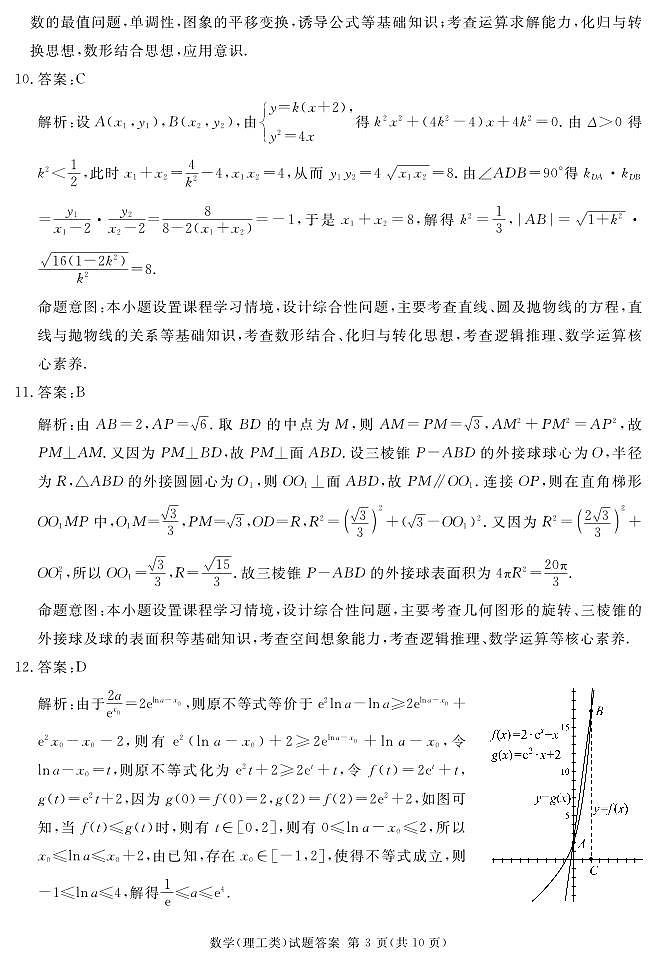 数的最值问题,单调性,图象的平移变换,诱导公式等基础知识;考查运算求解能力,化归与转
换思想,数形结合思想,应用意识.
10. 答案:C
解析:设 A(x₁,y₁),B(x₂,y₂),由{y=k(x+2), y²=4x 得 k²x²+(4k²-4)x+4k²=0. 由 Δ>0 得
k²<1/2,此时 x₁+x₂=4/k²-4,x₁x₂=4,从而 y₁y₂=4√(x₁x₂)=8. 由∠ADB=90°得 k_DA·k_DB
=y₁/(x₁-2)·y₂/(x₂-2)=8/(8-2(x₁+x₂))=-1,于是 x₁+x₂=8,解得 k²=1/3,|AB|=√(1+k²)·
√(16(1-2k²))/k²=8.
命题意图:本小题设置课程学习情境,设计综合性问题,主要考查直线、圆及抛物线的方程,直
线与抛物线的关系等基础知识,考查数形结合、化归与转化思想,考查逻辑推理、数学运算核
心素养.
11. 答案:B
解析:由 AB=2,AP=√6. 取 BD 的中点为 M,则 AM=PM=√3,AM²+PM²=AP²,故
PM⊥AM. 又因为 PM⊥BD,故 PM⊥面 ABD. 设三棱锥 P-ABD 的外接球球心为 O,半径
为 R,△ABD 的外接圆圆心为 O₁,则 OO₁⊥面 ABD,故 PM∥OO₁. 连接 OP,则在直角梯形
OO₁MP 中,O₁M=√3/3,PM=√3,OD=R,R²=(√3/3)²+(√3-OO₁)². 又因为 R²=(2√3/3)²+
OO₁²,所以 OO₁=√3/3,R=√15/3. 故三棱锥 P-ABD 的外接球表面积为 4πR²=20π/3.
命题意图:本小题设置课程学习情境,设计综合性问题,主要考查几何图形的旋转、三棱锥的
外接球及球的表面积等基础知识,考查空间想象能力,考查逻辑推理、数学运算等核心素养.
12. 答案:D
解析:由于2a/e^(x₀)=2e^(ln a-x₀),则原不等式等价于 e²ln a-ln a≥2e^(ln a-x₀)+
e²x₀-x₀-2,则有 e²(ln a-x₀)+2≥2e^(ln a-x₀)+ln a-x₀,令
ln a-x₀=t,则原不等式化为 e²t+2≥2eᵗ+t,令 f(t)=2eᵗ+t,
g(t)=e²t+2,因为 g(0)=f(0)=2,g(2)=f(2)=2e²+2,如图可
知,当 f(t)≤g(t)时,则有 t∈[0,2],则有 0≤ln a-x₀≤2,所以
x₀≤ln a≤x₀+2,由已知,存在 x₀∈[-1,2],使得不等式成立,则
-1≤ln a≤4,解得1/e≤a≤e⁴.
B
15
f(x)=2·eˣ+x
g(x)=e²·x+2
10
y=g(x)
y=f(x)
5
A
C
数学(理工类)试题答案 第 3 页(共 10 页)